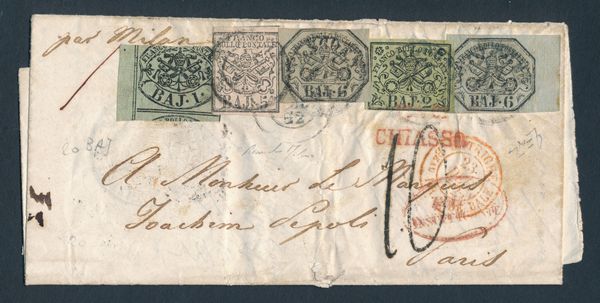 par Milan
FRANCO BOLLO POSTALE
BAJ. 1
FRANCO
BOLLO POSTALE
BAJ. 5
BAJ. 6
FRANCO BOLLO POSTALE
BAJ. 2
FRANCO BOLLO POSTALE
BAJ. 6
52
CHIASSO
20 BAJ
10
A Monsieur Le Marquis
Joachim Pepoli
Paris